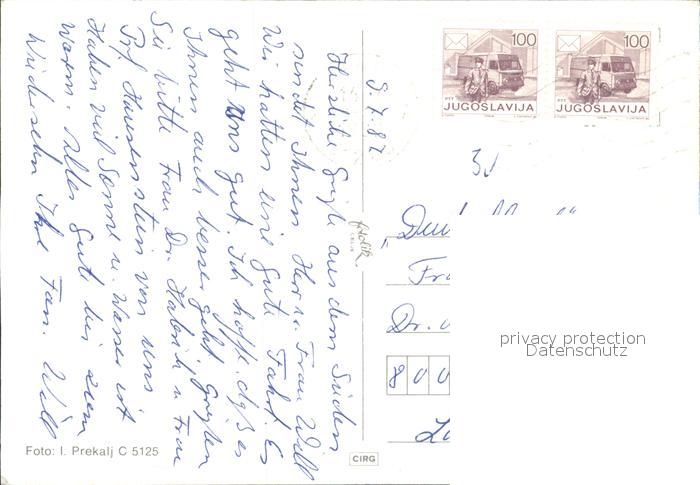 Herzliche Grüße aus dem Süden
sendet Ihnen Herr u. Frau Will
Wir hatten eine gute Fahrt. Es
geht uns gut. Ich hoffe daß es
Ihnen auch besser geht. Grüßen
Sie bitte Frau Dr. u. Frau
Prf. Hauenstein von uns
Haben viel Sonne u. Wasser ist
warm. Alles Gute bis zum
Wiedersehn Ihre Fam. Will
9.7.87
100
PTT
JUGOSLAVIJA
100
PTT
JUGOSLAVIJA
Fr
Dr.
800
privacy protection
Datenschutz
Foto: I. Prekalj C 5125
CIRG